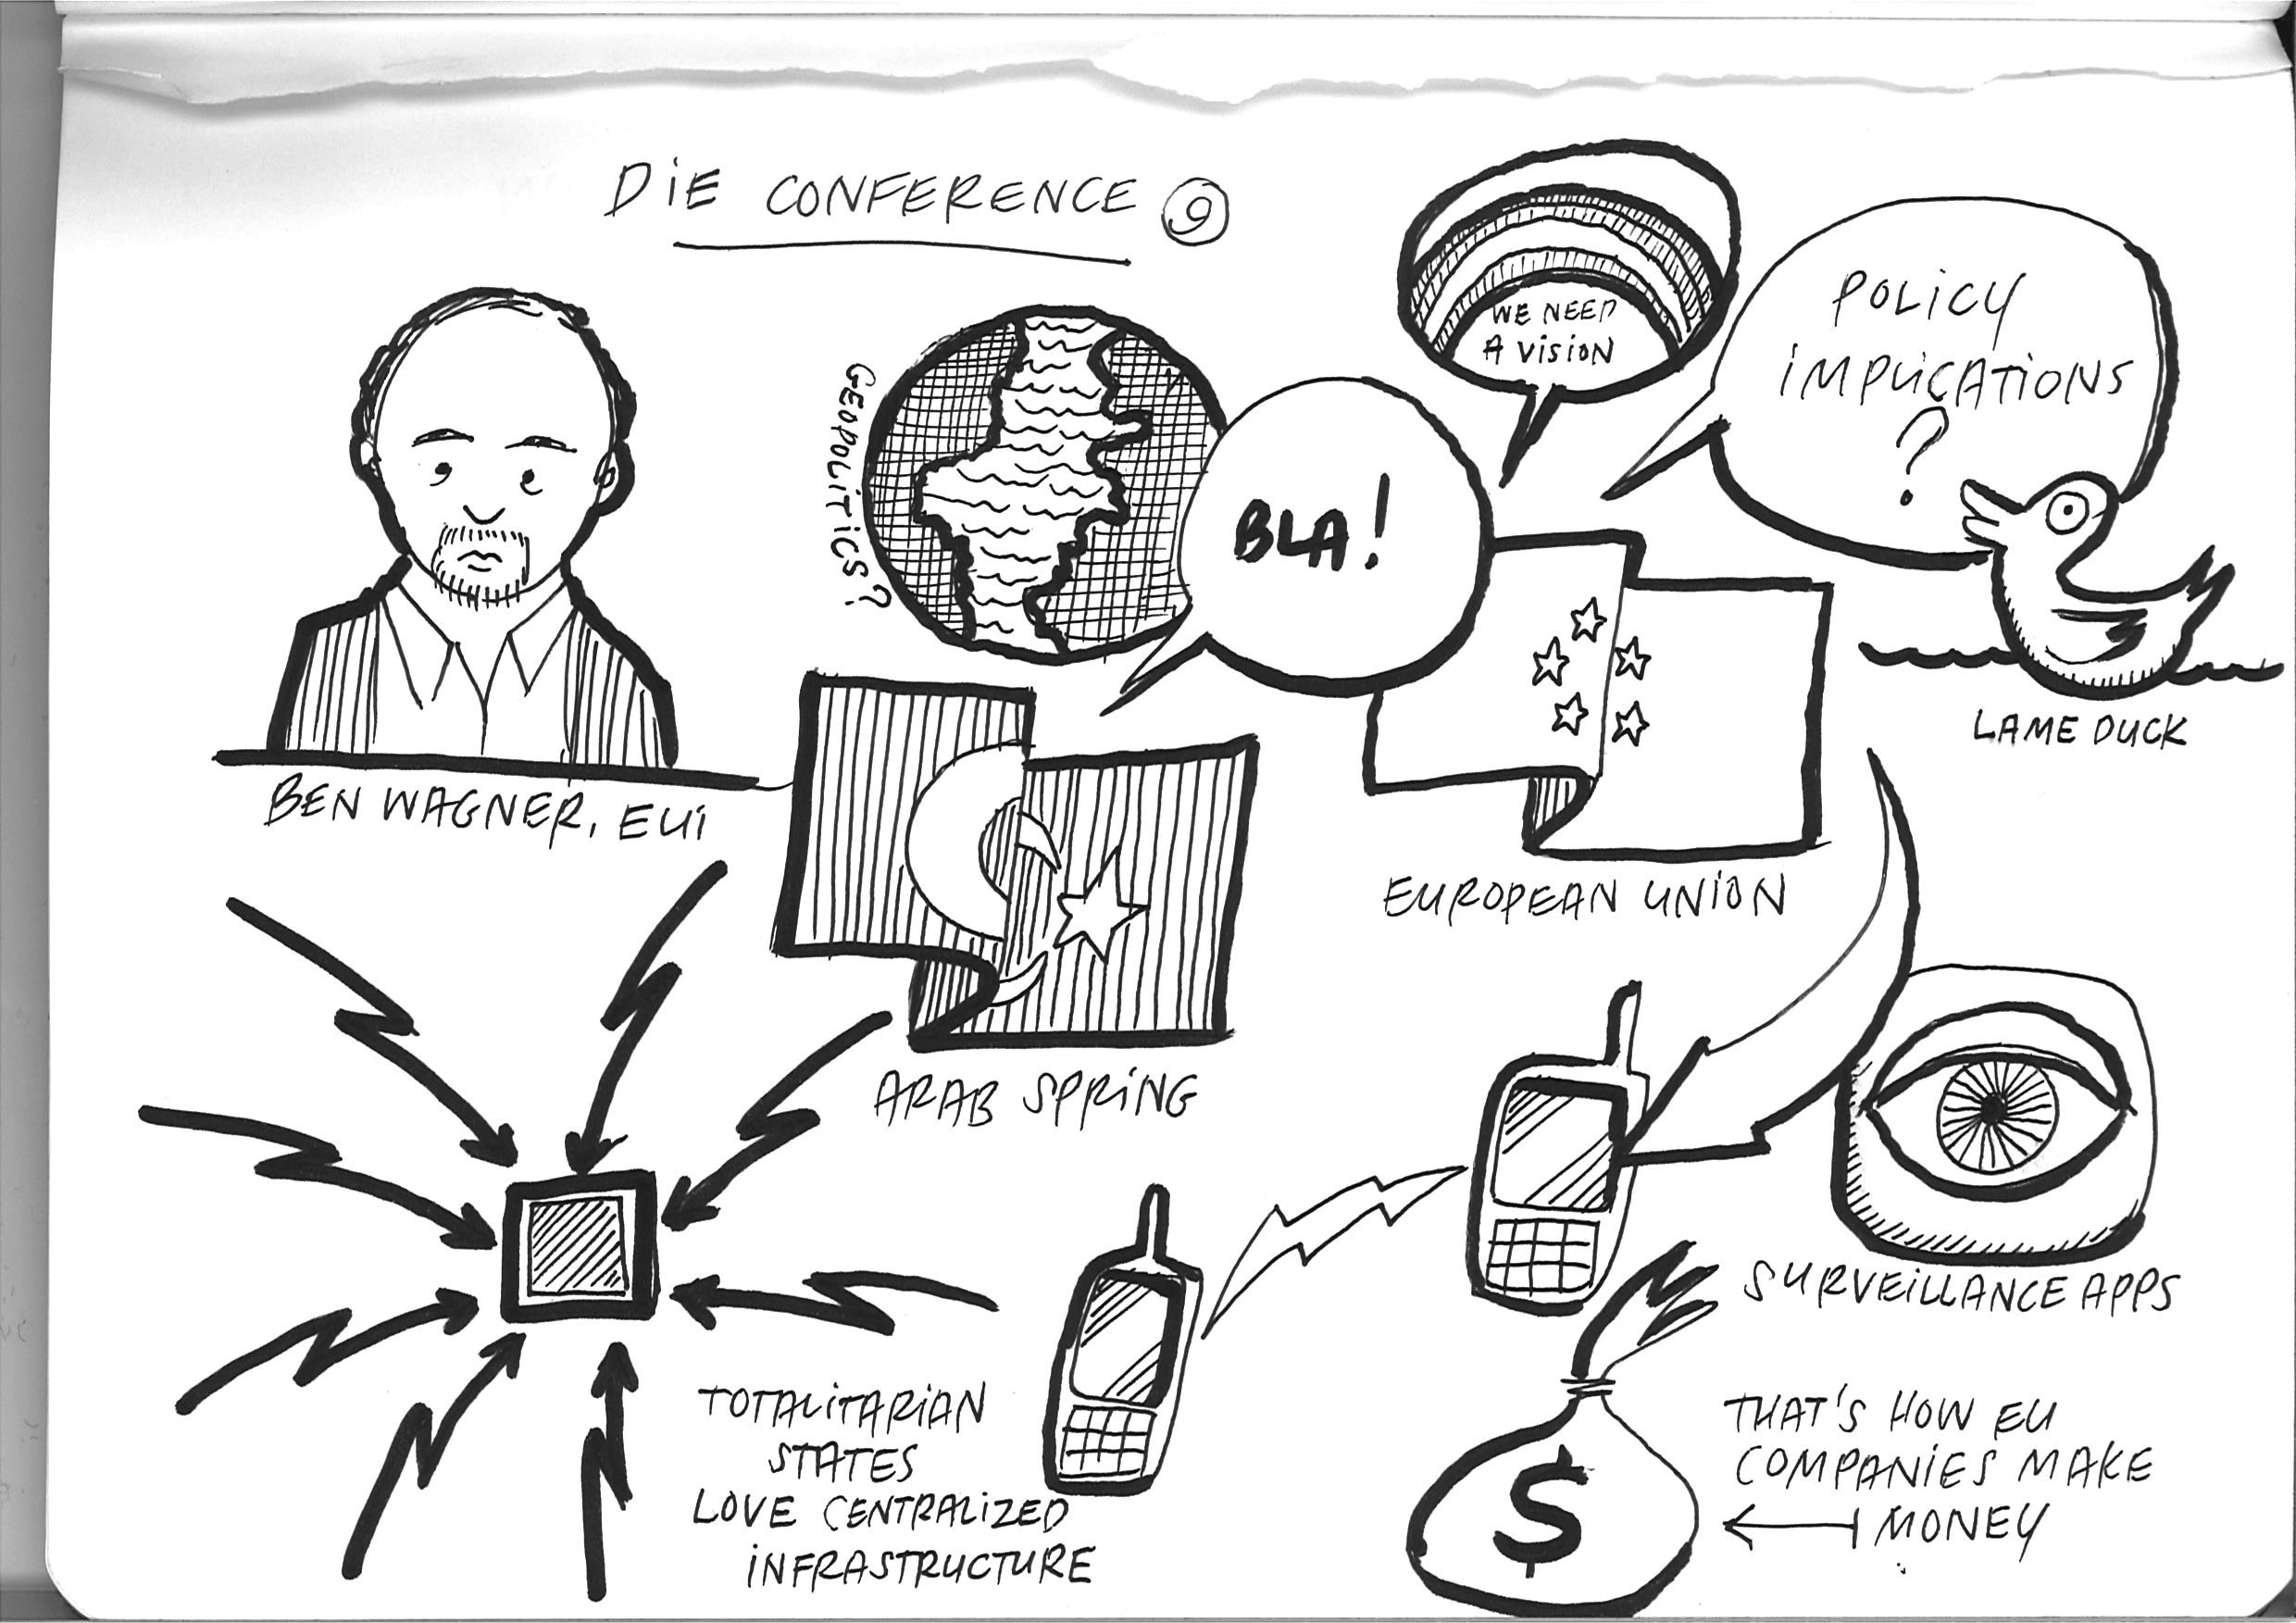 DiE CONFERENCE 9
BEN WAGNER, EUi
GEOPOLiTiCS?
BLA!
WE NEED
A ViSiON
POLiCY
iMPLiCATiONS
?
LAME DUCK
EUROPEAN UNiON
ARAB SPRiNG
SURVEiLLANCE APPS
TOTALiTARiAN
STATES
LOVE CENTRALiZED
iNFRASTRUCTURE
$
THAT'S HOW EU
COMPANiES MAKE
MONEY